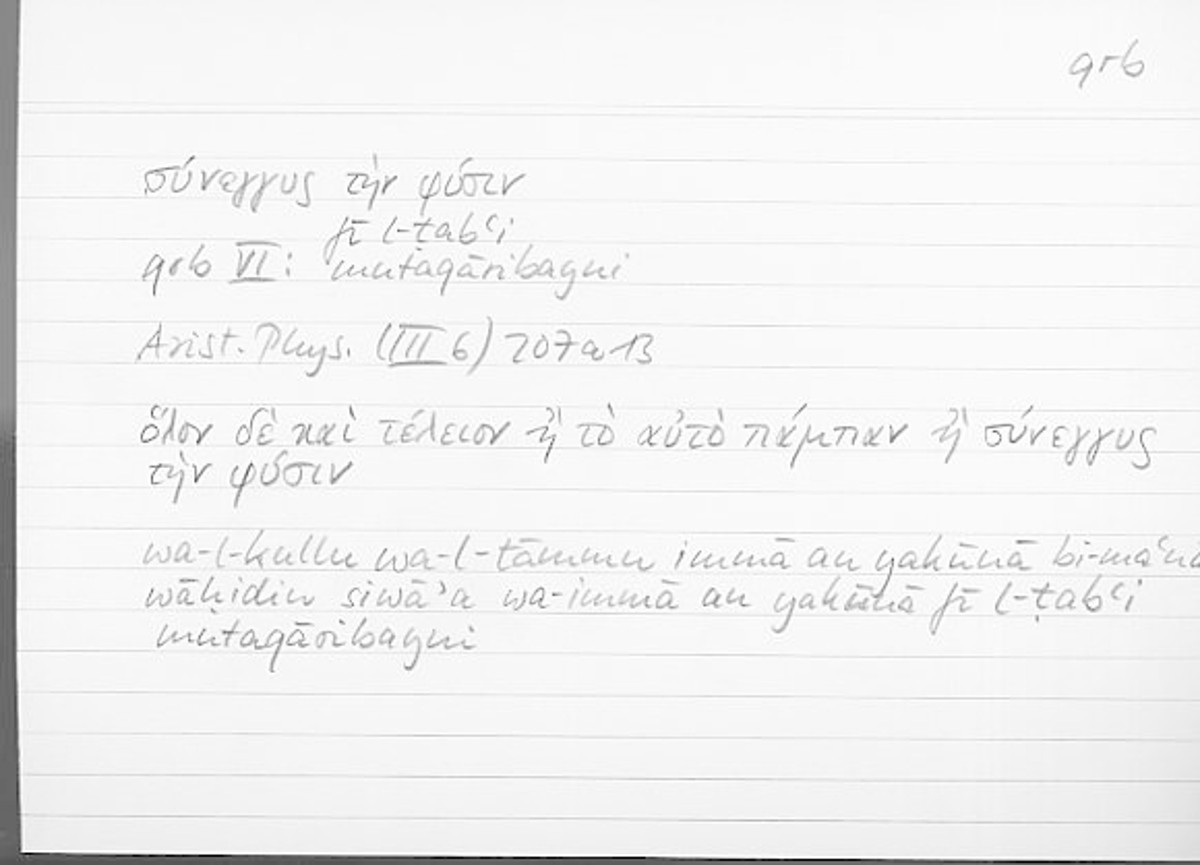 qrb
σύνεγγυς τὴν φύσιν
fī l-ṭabʿi
qrb VI: mutaqāribayni
Arist. Phys. (III 6) 207 a 13
ὅλον δὲ καὶ τέλειον ἢ τὸ αὐτὸ πάμπαν ἢ σύνεγγυς
τὴν φύσιν
wa-l-kullu wa-l-tāmmu immā an yakūnā bi-maʿnā
wāḥidin siwāʾa wa-immā an yakūnā fī l-ṭabʿi
mutaqāribayni